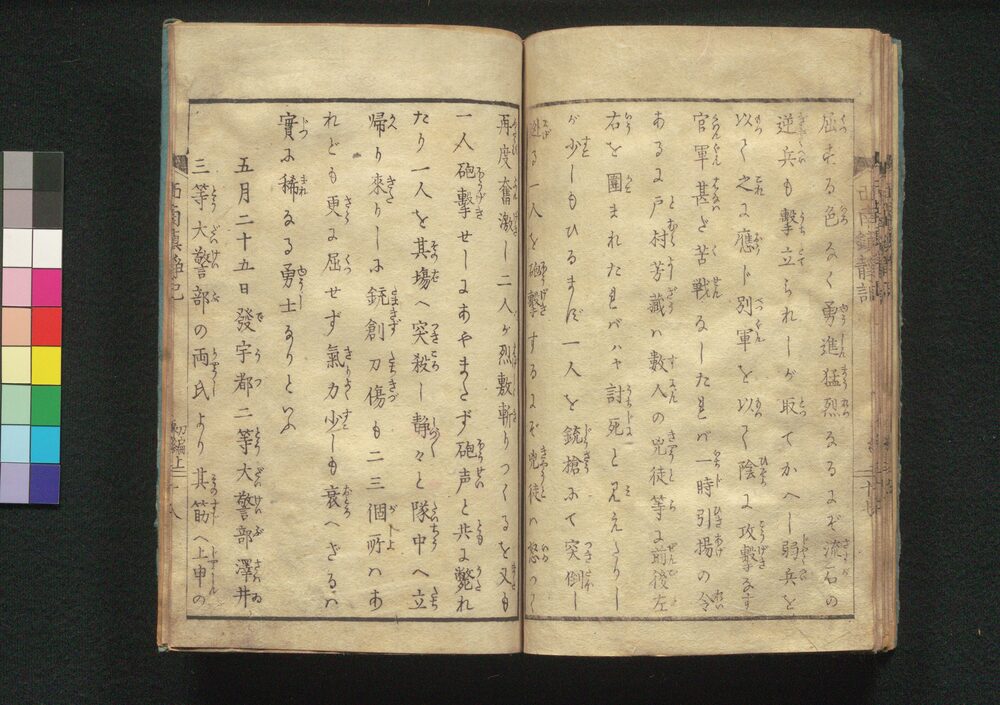 屈する色なく勇進猛烈なるにぞ流石の
逆兵も撃立られしが取てかへし弱兵を
以て之に應じ別軍を以て陰に攻撃なす
官軍甚ど苦戦なしたれば一時引揚の令
あるに戸村芳藏ハ數人の兇徒等に前後左
右を圍まれたれバハヤ討死と見えたりし
が少しもひるまず一人を銃槍にて突倒し
迯る一人を砲撃するにぞ兇徒ハ怒つて
再度奮激し二人が烈敷斬りつくるを又も
一人砲撃せしにあやまたず砲声と共に斃れ
たり一人を其場へ突殺し静々と隊中へ立
帰り來りしに銃創刀傷も二三個所ハあ
れども更に屈せず氣力少しも衰へざるハ
實に稀なる勇士なりといふ
五月二十五日發宇都二等大警部澤井
三等大警部の両氏より其筋へ上申の
西南鎮静記
初編上
十八